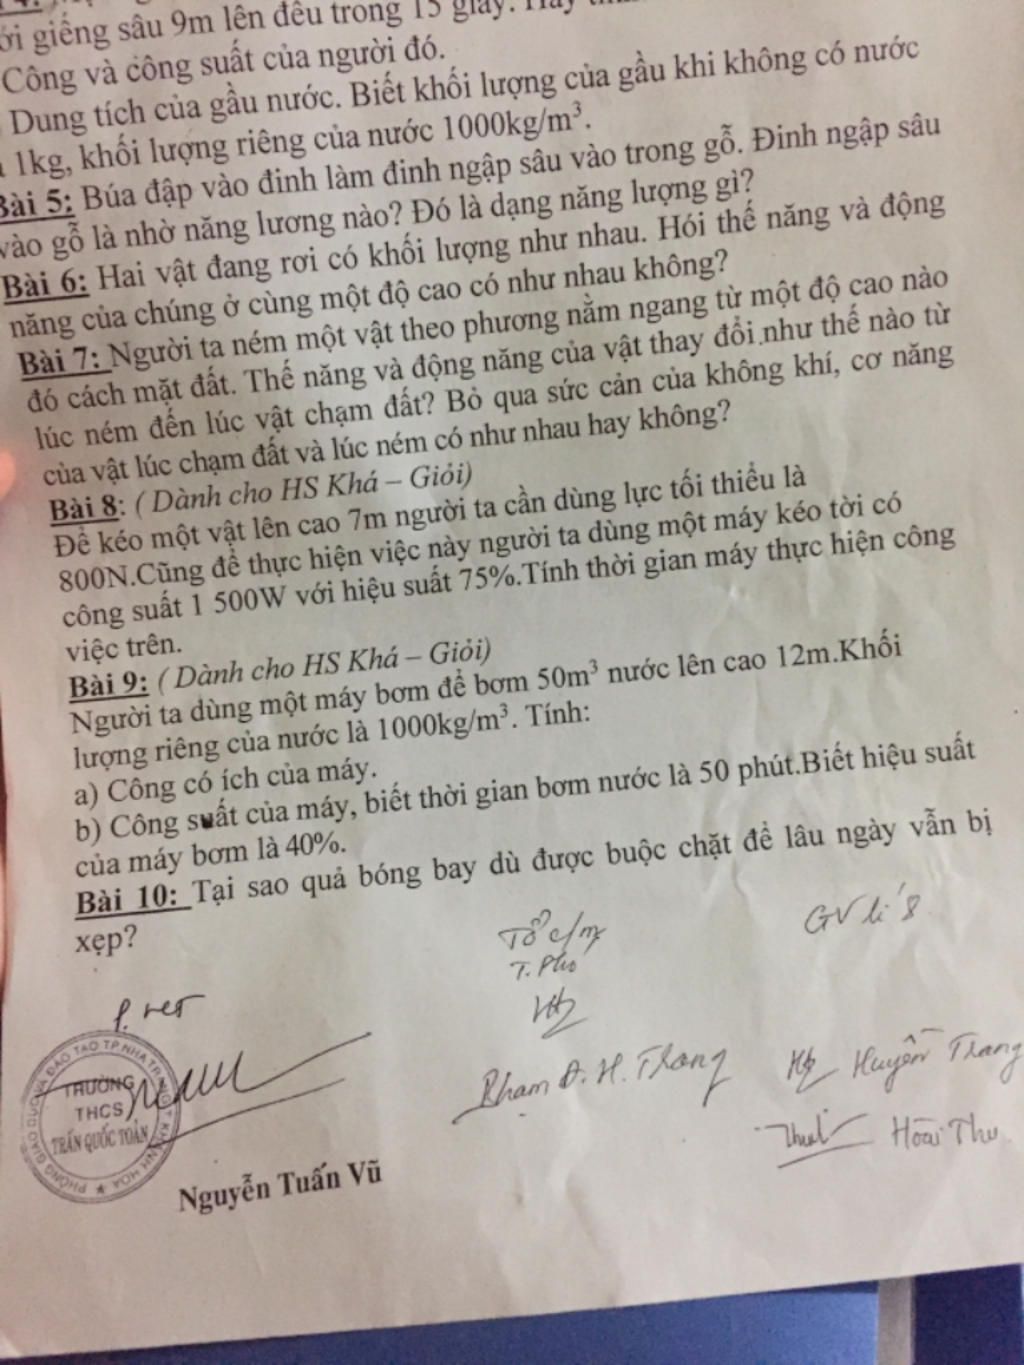 ới giếng sâu 9m lên đều trong 15 giây.
Công và công suất của người đó.
Dung tích của gầu nước. Biết khối lượng của gầu khi không có nước
1kg, khối lượng riêng của nước 1000kg/m³.
Bài 5: Búa đập vào đinh làm đinh ngập sâu vào trong gỗ. Đinh ngập sâu
vào gỗ là nhờ năng lương nào? Đó là dạng năng lượng gì?
Bài 6: Hai vật đang rơi có khối lượng như nhau. Hói thế năng và động
năng của chúng ở cùng một độ cao có như nhau không?
Bài 7: Người ta ném một vật theo phương nằm ngang từ một độ cao nào
đó cách mặt đất. Thế năng và động năng của vật thay đổi như thế nào từ
lúc ném đến lúc vật chạm đất? Bỏ qua sức cản của không khí, cơ năng
của vật lúc chạm đất và lúc ném có như nhau hay không?
Bài 8: ( Dành cho HS Khá – Giỏi)
Để kéo một vật lên cao 7m người ta cần dùng lực tối thiểu là
800N.Cũng để thực hiện việc này người ta dùng một máy kéo tời có
công suất 1 500W với hiệu suất 75%.Tính thời gian máy thực hiện công
việc trên.
Bài 9: ( Dành cho HS Khá – Giỏi)
Người ta dùng một máy bơm để bơm 50m³ nước lên cao 12m.Khối
lượng riêng của nước là 1000kg/m³. Tính:
a) Công có ích của máy.
b) Công suất của máy, biết thời gian bơm nước là 50 phút.Biết hiệu suất
của máy bơm là 40%.
Bài 10: Tại sao quả bóng bay dù được buộc chặt để lâu ngày vẫn bị
xẹp?
Tổ c/m
GV lí 8
T. Phó
TRƯỜNG
THCS
TRẦN QUỐC TOẢN
Phạm Đ. H. Thang
Huyền Trang
Hoài Thu
Nguyễn Tuấn Vũ